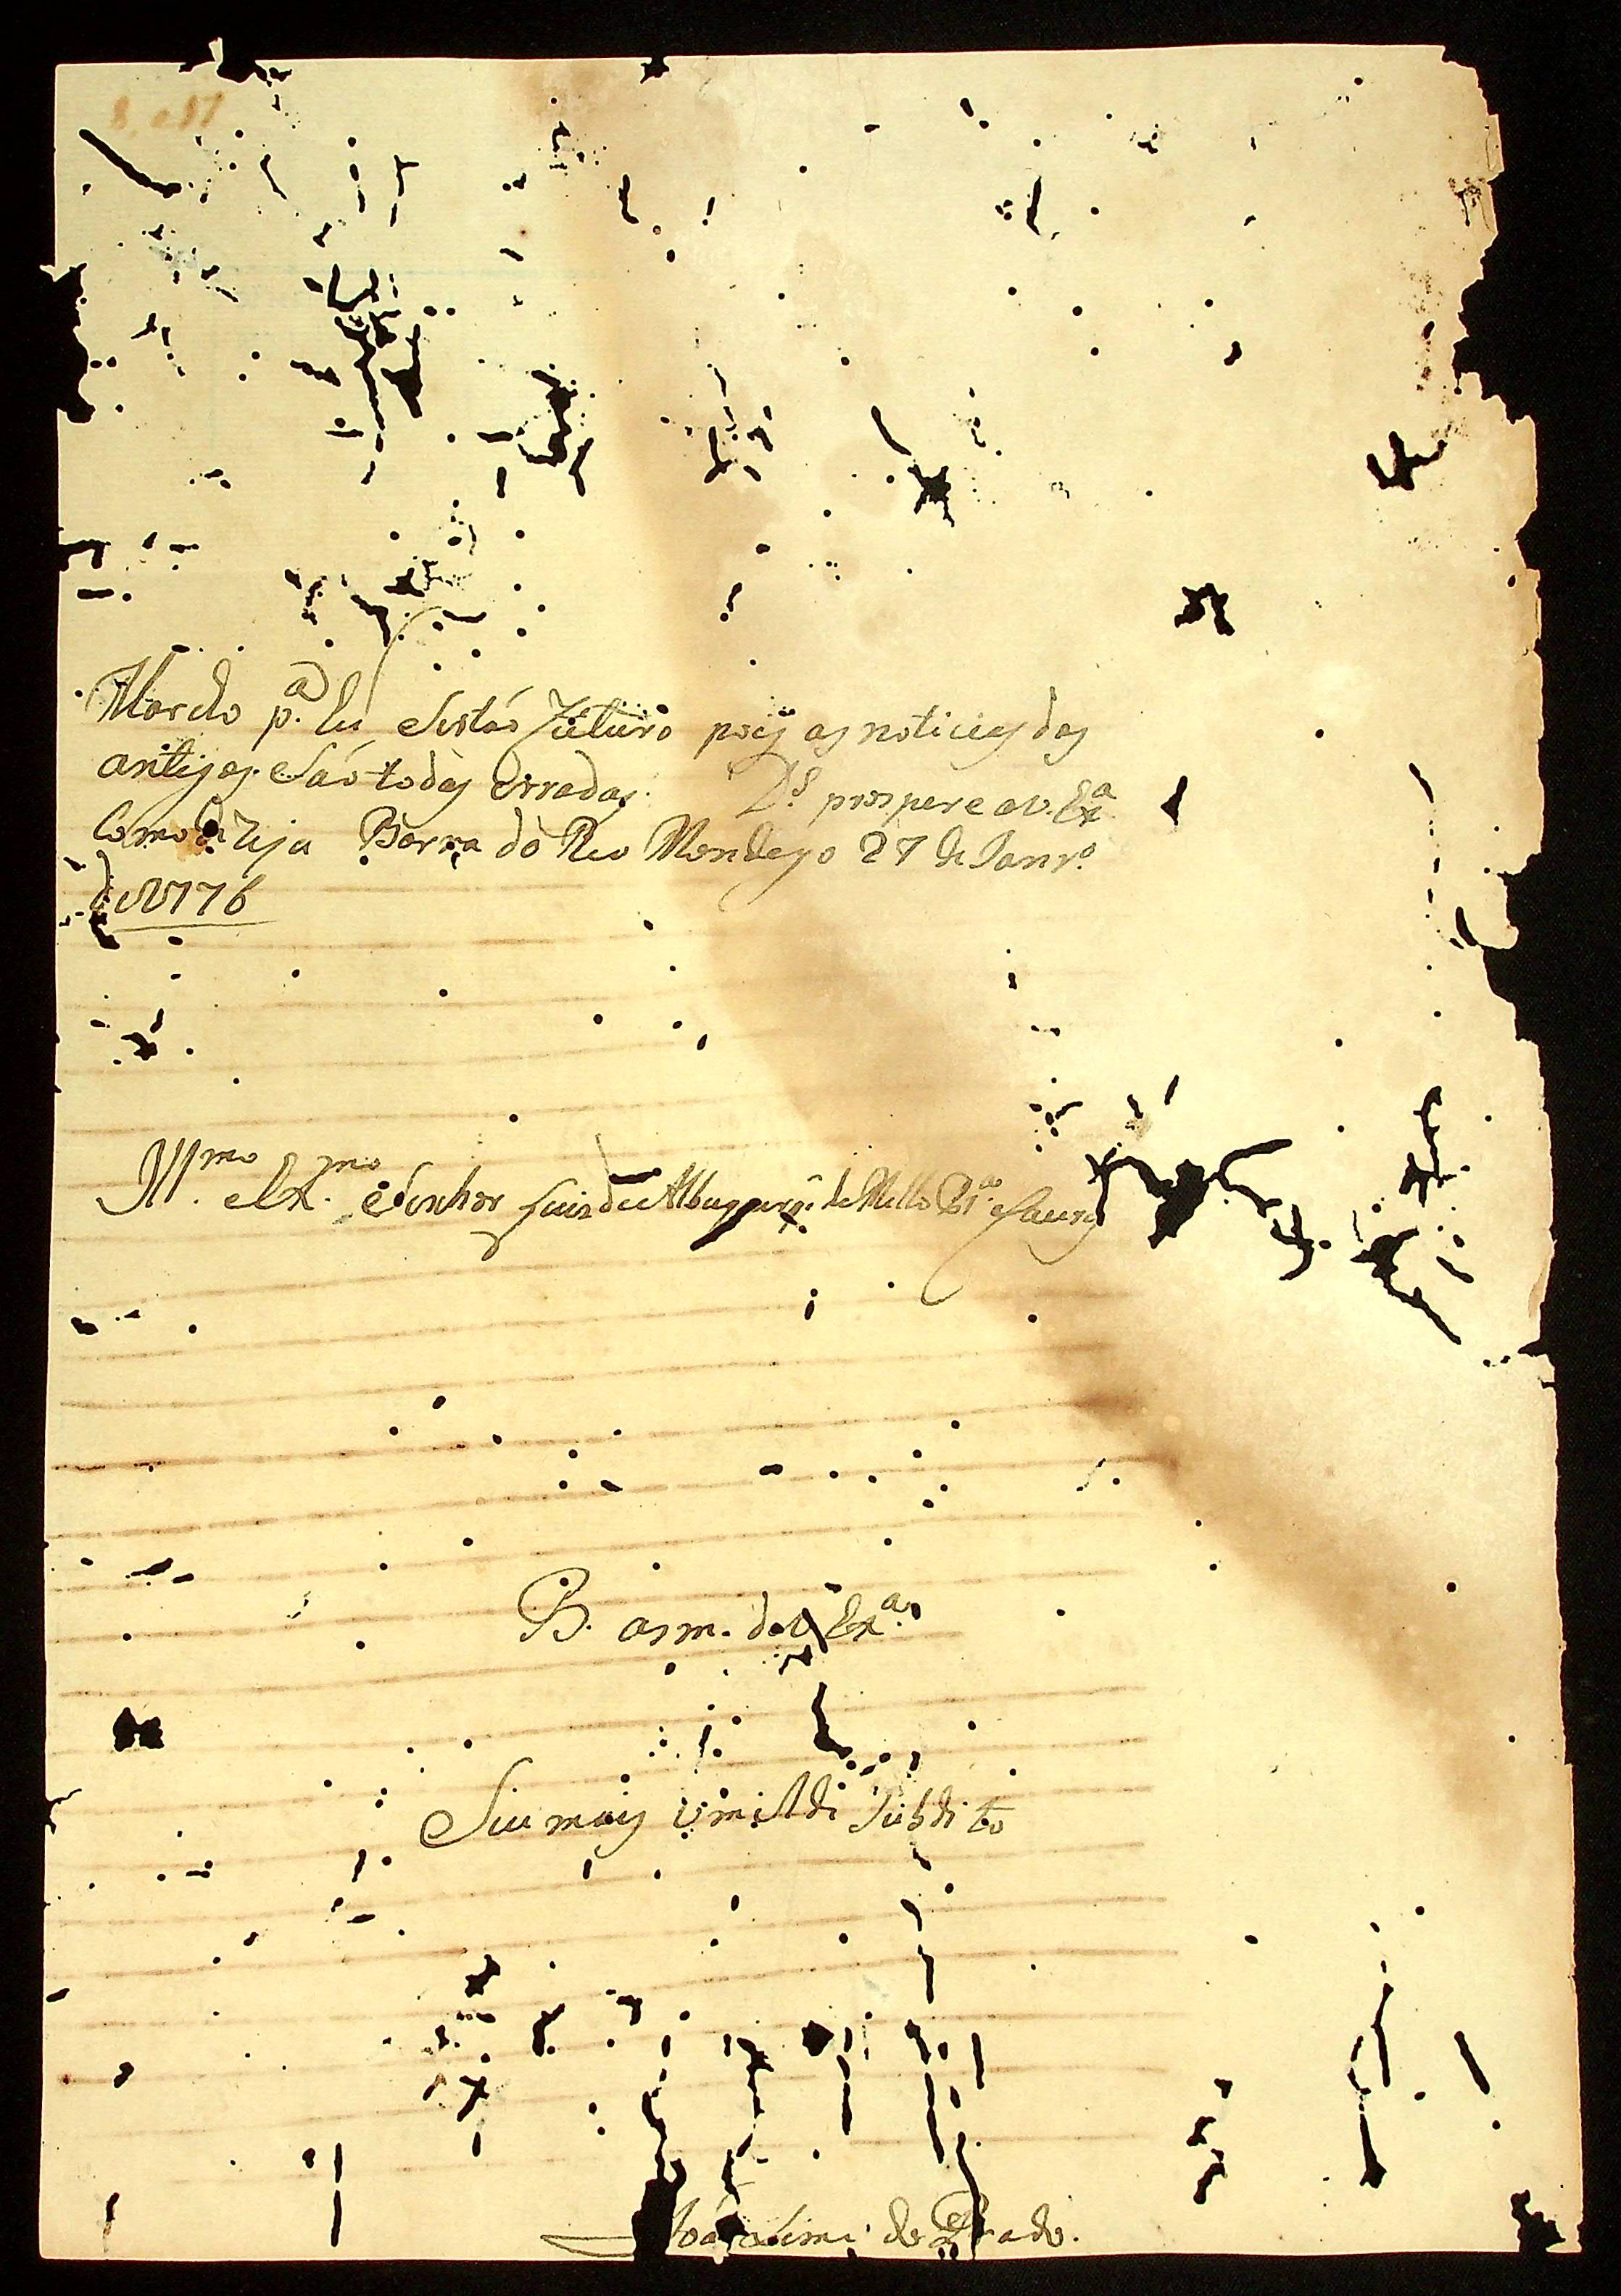 Marcho p.ª lu Sertaó futuro pois as noticias das
antigas Saó todas erradas. D.s prospere a v. Ex.ª
Como dezeja Barra do Rio Mondego 27 de Janr.º
de 1776
Ill.mo e Ex.mo Senhor Luis de Albuqper.q̃ de Mello Pr.ª e Caures
B. as m. de V Ex.ª
Seu mais Umildi Subdito
Joaó Leme do Prado.